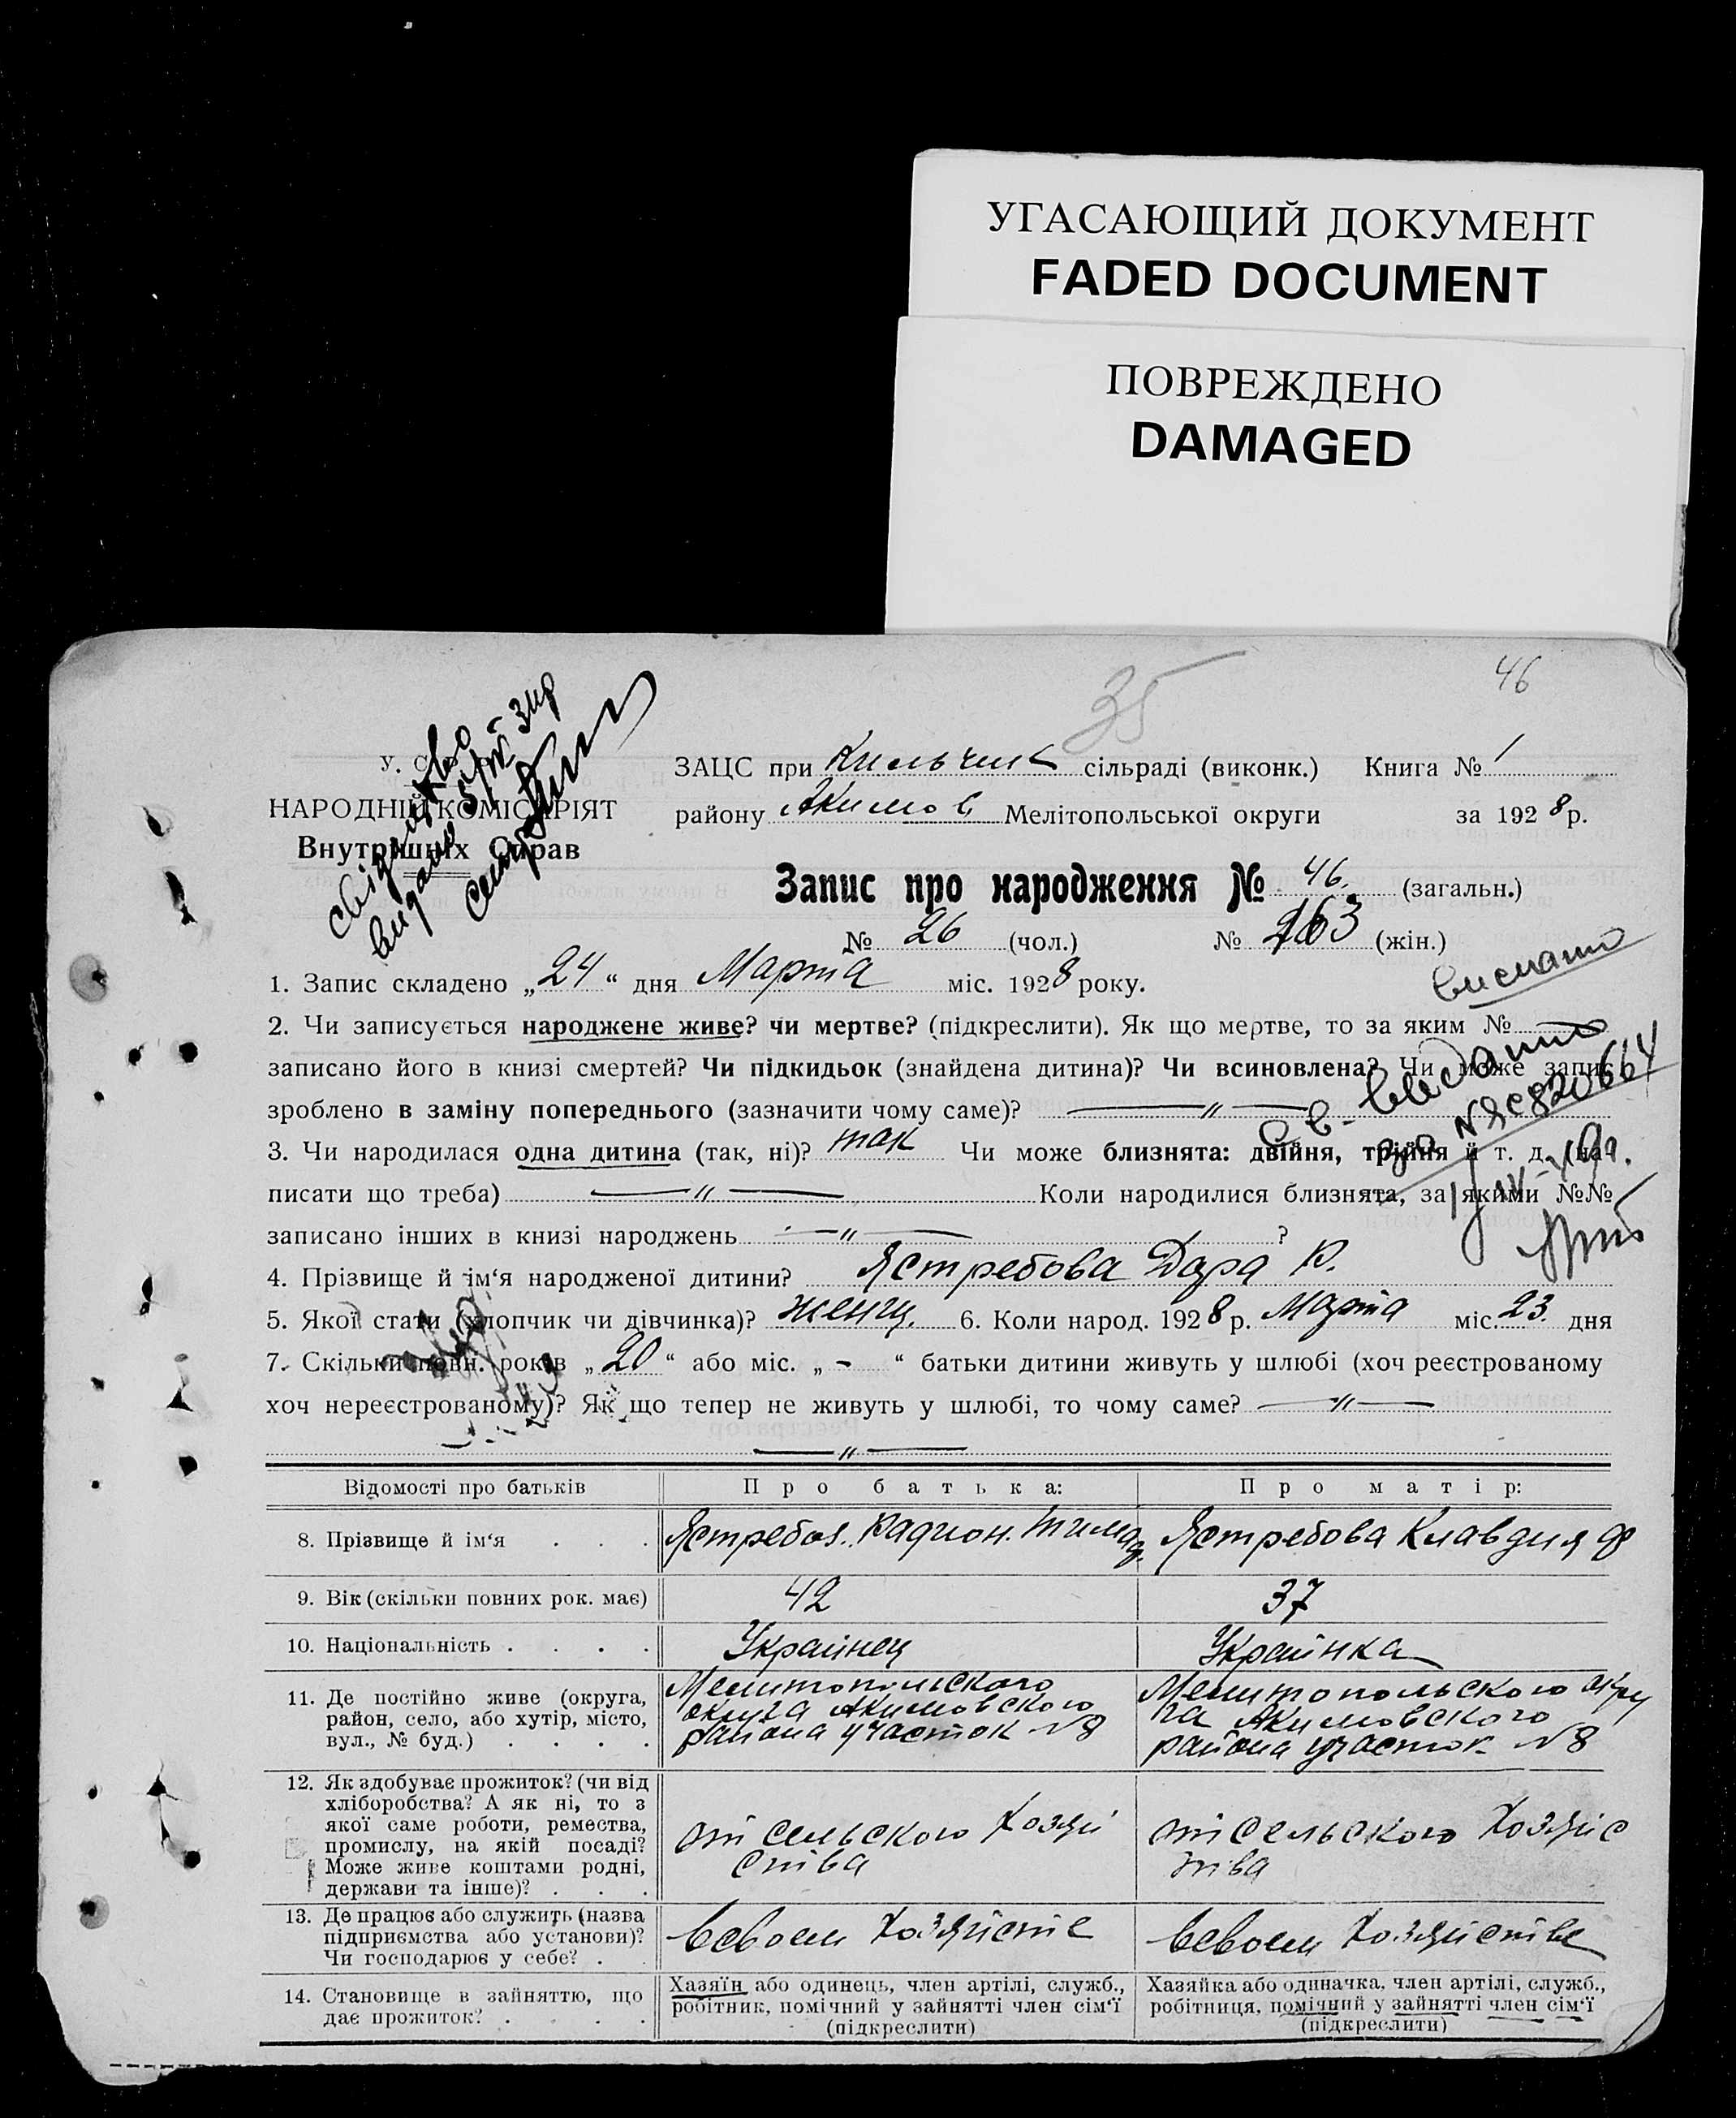 УГАСАЮЩИЙ ДОКУМЕНТ
FADED DOCUMENT
ПОВРЕЖДЕНО
DAMAGED
46
35
У. С. Р. Р.
НАРОДНІЙ КОМІСАРІЯТ
Внутрішніх Справ
ЗАЦС при сільраді (виконк.) Книга № 1
району Акимов Мелітопольської округи за 1928 р.
Запис про народження № 46. (загальн.)
№ 26 (чол.) № (жін.)
1. Запис складено „24“ дня Марта міс. 1928 року.
2. Чи записується народжене живе? чи мертве? (підкреслити). Як що мертве, то за яким №
записано його в книзі смертей? Чи підкидьок (знайдена дитина)? Чи всиновлена? Чи може запис
зроблено в заміну попереднього (зазначити чому саме)? — „ —
3. Чи народилася одна дитина (так, ні)? так Чи може близнята: двійня, трійня й т. д. (на-
писати що треба) — „ — Коли народилися близнята, за якими №№
записано інших в книзі народжень — „ — ?
4. Прізвище й ім‘я народженої дитини? Ястребова Дара Р.
5. Якої стати (хлопчик чи дівчинка)? женщ. 6. Коли народ. 1928 р. Марта міс. 23 дня
7. Скільки повн. років „20“ або міс. „ - “ батьки дитини живуть у шлюбі (хоч реєстрованому
хоч нереєстрованому)? Як що тепер не живуть у шлюбі, то чому саме? — „ —
— „ —
Відомості про батьків Про батька: Про матір:
8. Прізвище й ім‘я . . . Ястребов. Радион. Ястребова Клавдия Ф
9. Вік (скільки повних рок. має) 42 37
10. Національність . . . . Украинец Украинка
11. Де постійно живе (округа,
район, село, або хутір, місто,
вул., № буд.) . . . .
Мелитопольского
округа Акимовского
района участок №8
Мелитопольского окру
га Акимовского
района участок №8
12. Як здобуває прожиток? (чи від
хліборобства? А як ні, то з
якої саме роботи, ремества,
промислу, на якій посаді?
Може живе коштами родні,
держави та інше)? . . .
от сельского хозяй
ства
от сельского хозяйс
тва
13. Де працює або служить (назва
підприємства або установи)?
Чи господарює у себе? . .
всвоем хозяйсте
всвоем хозяйстве
14. Становище в зайняттю, що
дає прожиток? . . . .
Хазяїн або одинець, член артілі, служб.,
робітник, помічний у зайнятті член сім‘ї
(підкреслити)
Хазяйка або одиначка, член артілі, служб.,
робітниця, помічний у зайнятті член сім‘ї
(підкреслити)